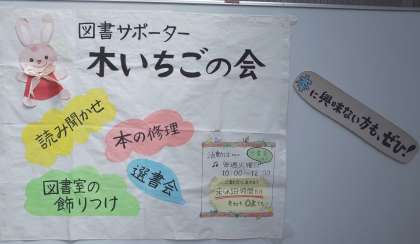 図書サポーター
木いちごの会
読み聞かせ
本の修理
選書会
図書室の
飾りつけ
活動は…
毎週火曜日
10:00~12:30
に興味ない方も、ぜひ!